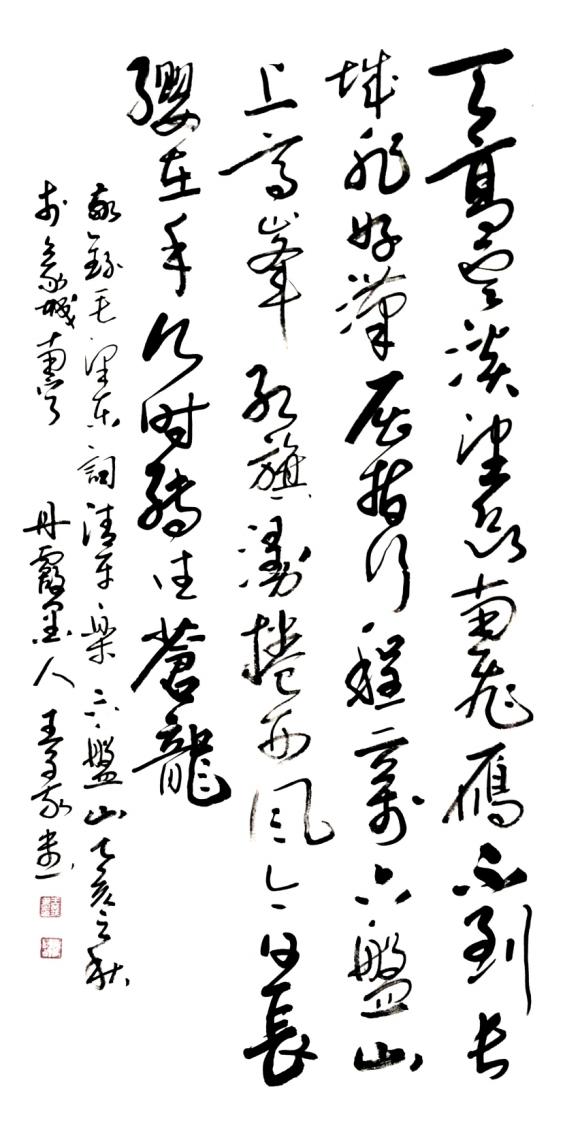 天高雲淡望斷南飛雁不到长
城非好漢屈指行程二萬六盤山
上高峯红旗漫捲西風今日長
纓在手何时縛住蒼龍
敬錄毛澤东詞清平樂六盤山亥之秋
於象城南丹霞墨人王書